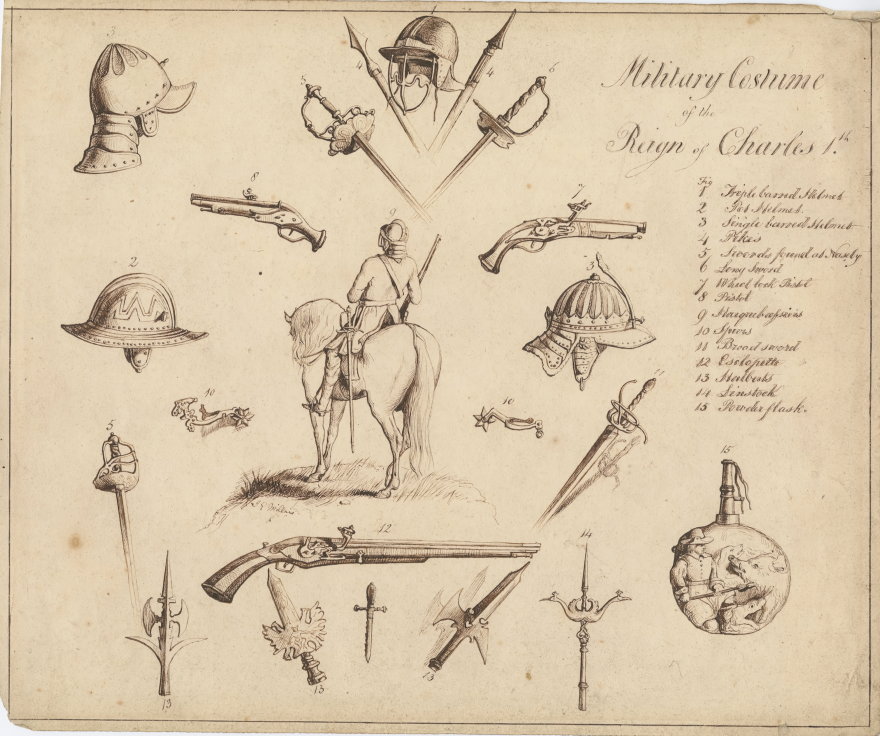 Military Costume
of the
Reign of Charles 1.st
Fig
1 Triple barred Helmet
2 Pot Helmet.
3 Single barred Helmet
4 Pikes
5 Swords found at Naseby
6 Long Sword
7 Wheel lock Pistol
8 Pistol
9
10 Spurs
11 Broad sword
12 Esclopette
13 Halberts
14 Linstock
15 Powder flask.
3
1
4
4
5
6
8
7
9
2
3
10
10
11
5
12
15
14
13
13
13